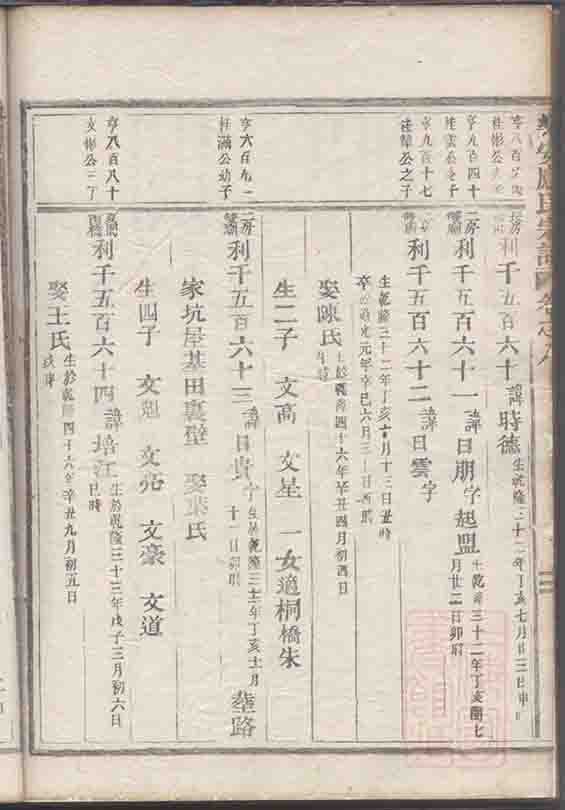 利千五百六十 諱時德 生乾隆三十二年丁亥七月廿三日申
亨九百四十
桂雲公之子
二房
利千五百六十一 諱日朋字起盟 生乾隆三十二年丁亥閏七
月廿二日卯時
亨九百十七
桂犖公之子
利千五百六十二 諱日雲字
生乾隆三十二年丁亥十月十三日丑時
卒 道光元年辛巳六月三十日酉時
娶陳氏 生於乾隆四十六年辛丑四月初四日
生二子 文高 文星 一女適桐橋朱
亨六百九
桂滿公幼子
二房
利千五百六十三 諱日貴字 生於乾隆三十二年丁亥十一月
十一日卯時
塟路
家坑屋基田裏壁 娶葉氏
生四子 文 文亮 文豪 文道
亨八百八十
文彬公三子
利千五百六十四 諱培江 生於乾隆三十三年戊子三月初六日
巳時
娶王氏 生於乾隆四十六年辛丑九月初五日